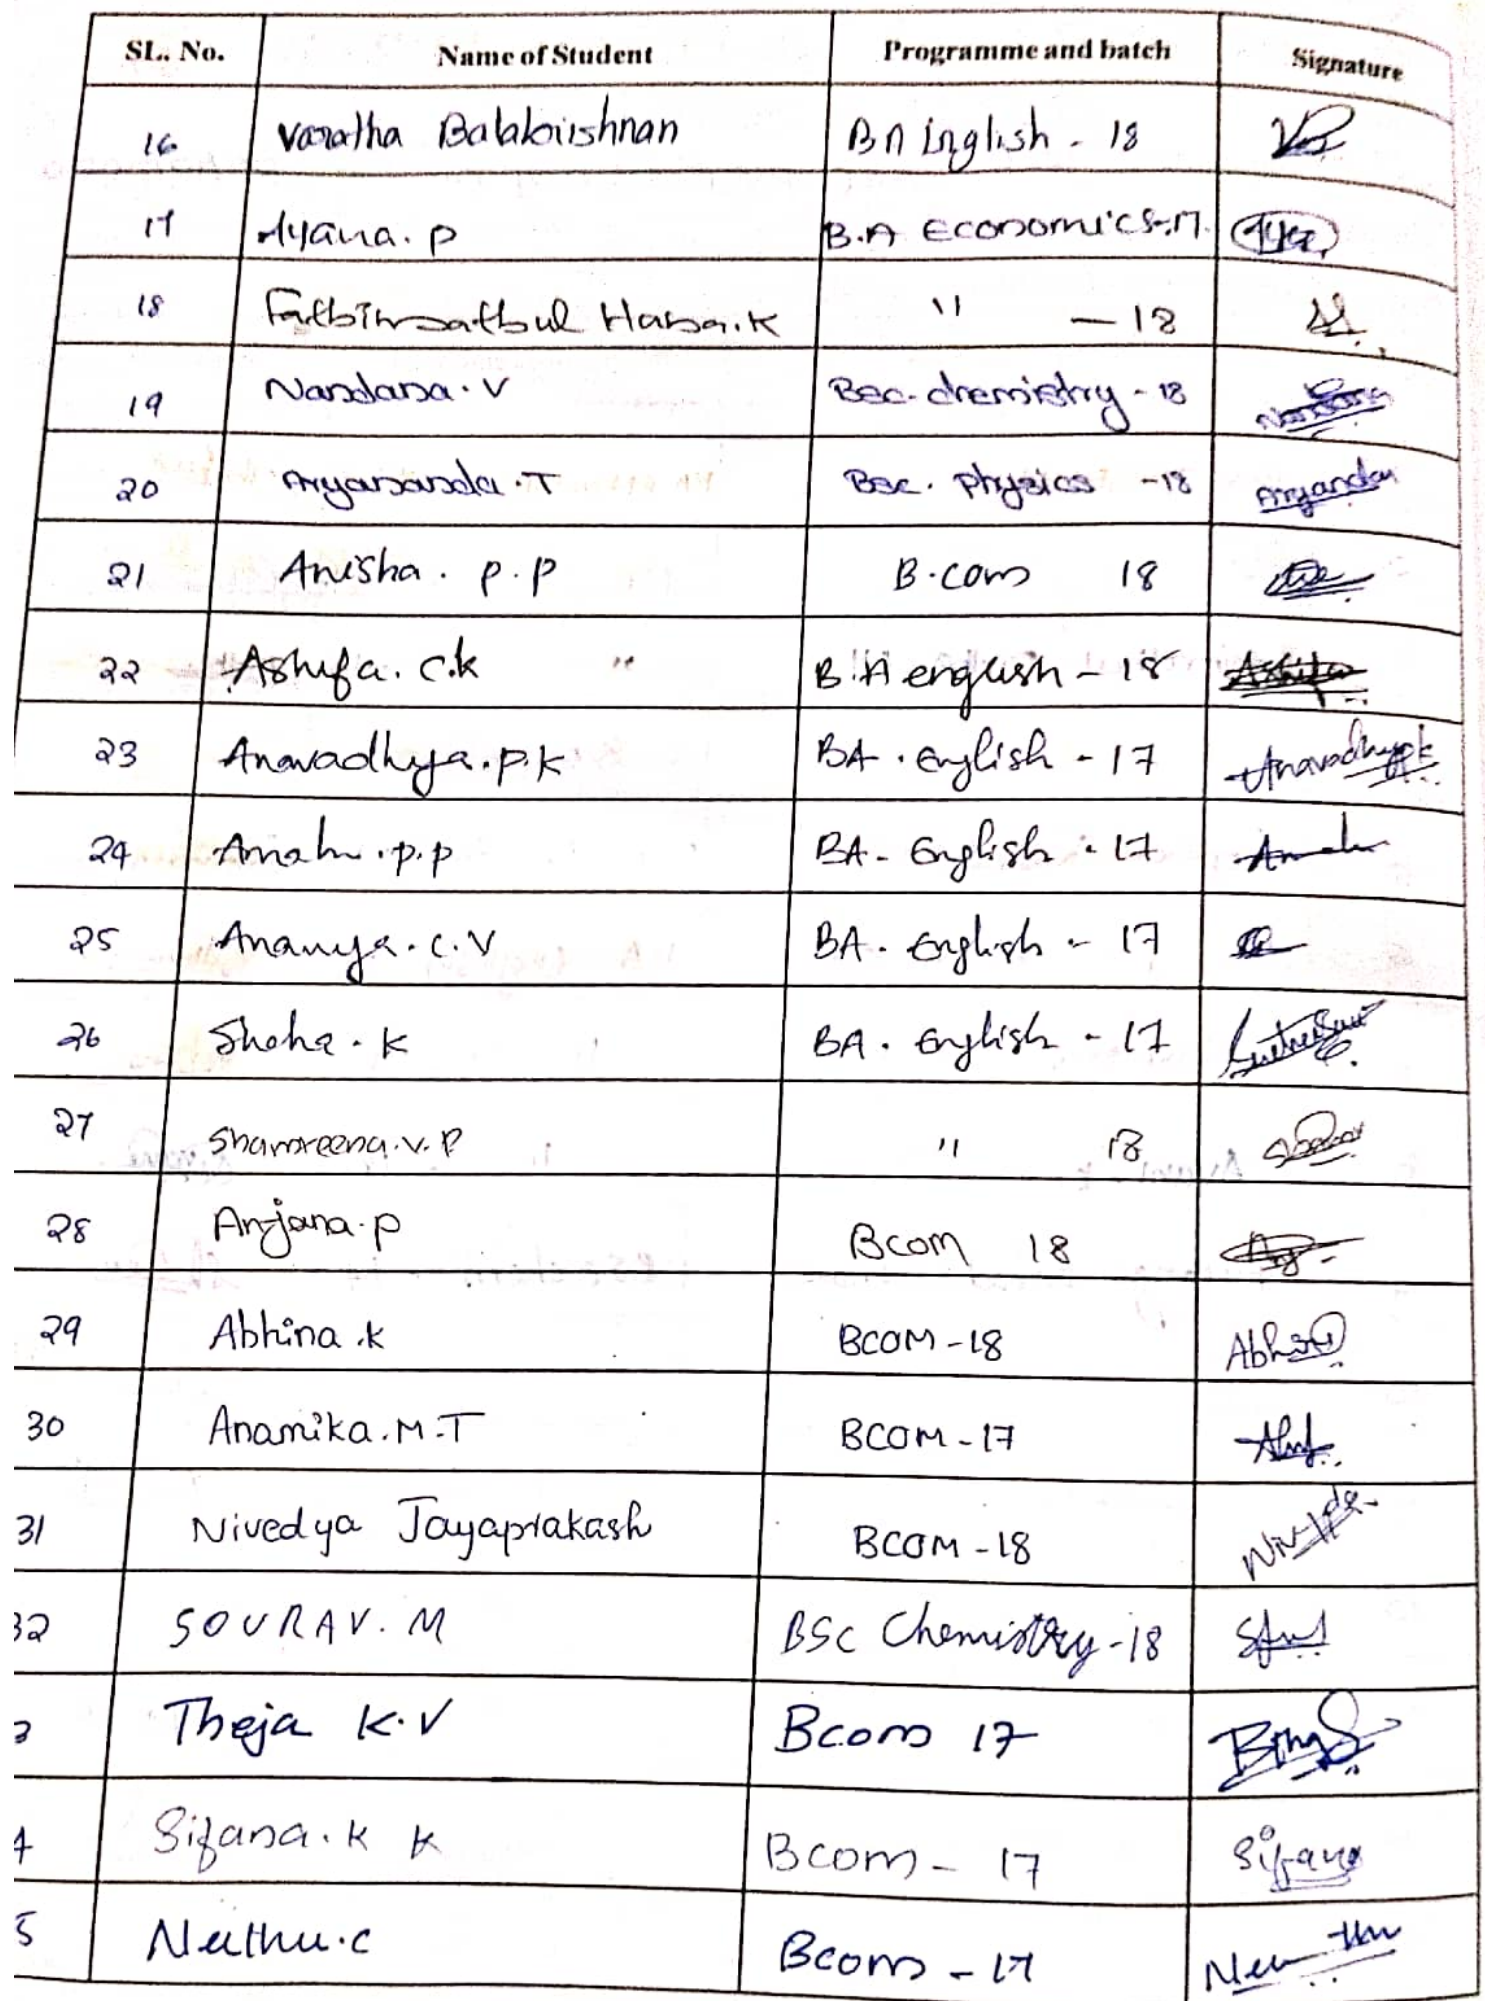 SL. No. Name of Student Programme and batch Signature
16 Balakrishnan BA English - 18
17 Ayana. P B.A Economics-17.
18 Hasna.K " - 18
19 Nandana. V Bsc. chemistry - 18 Nandana
20 Aryananda. T Bsc. Physics - 18
21 Anisha. P. P B.com 18
22 Ashifa. C.k " B.A english - 18 Ashifa
23 Anavadhya. P. K BA. English - 17 Anavadhya pk
24 P. P BA - English - 17
25 Ananya. C. V BA. English - 17
26 K BA. English - 17
27 Shamreena. V. P " 18
28 Anjana. P Bcom 18
29 Abhina. k BCOM - 18
30 Anamika. M. T BCOM - 17
31 Nivedya Jayaprakash BCOM - 18
32 SOURAV. M BSc Chemistry - 18
3 Theja K. V Bcom 17
4 Sifana. K K Bcom - 17 Sifana
5 Neethu. C Bcom - 17